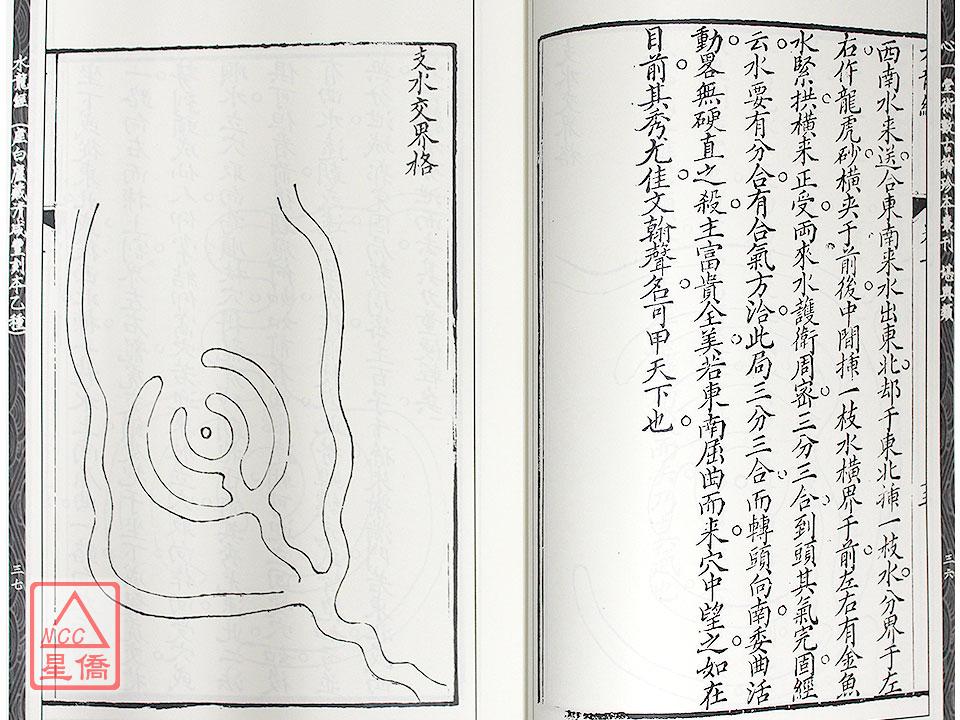 心一堂術數古籍珍本叢刊 堪輿類
三六
西南水来送合東南来水出東北却于東北揷一枝水分界于左
右作龍虎砂橫夹于前後中間揷一枝水橫界于前左右有金魚
水緊拱橫来正受兩來水護衛周密三分三合到頭其氣完固經
云水要有分合有合氣方洽此局三分三合而轉頭向南委曲活
動畧無硬直之殺主富貴全美若東南屈曲而来穴中望之如在
目前其秀尤佳文翰聲名可甲天下也
支水交界格
水龍經
三七
MCC
星僑